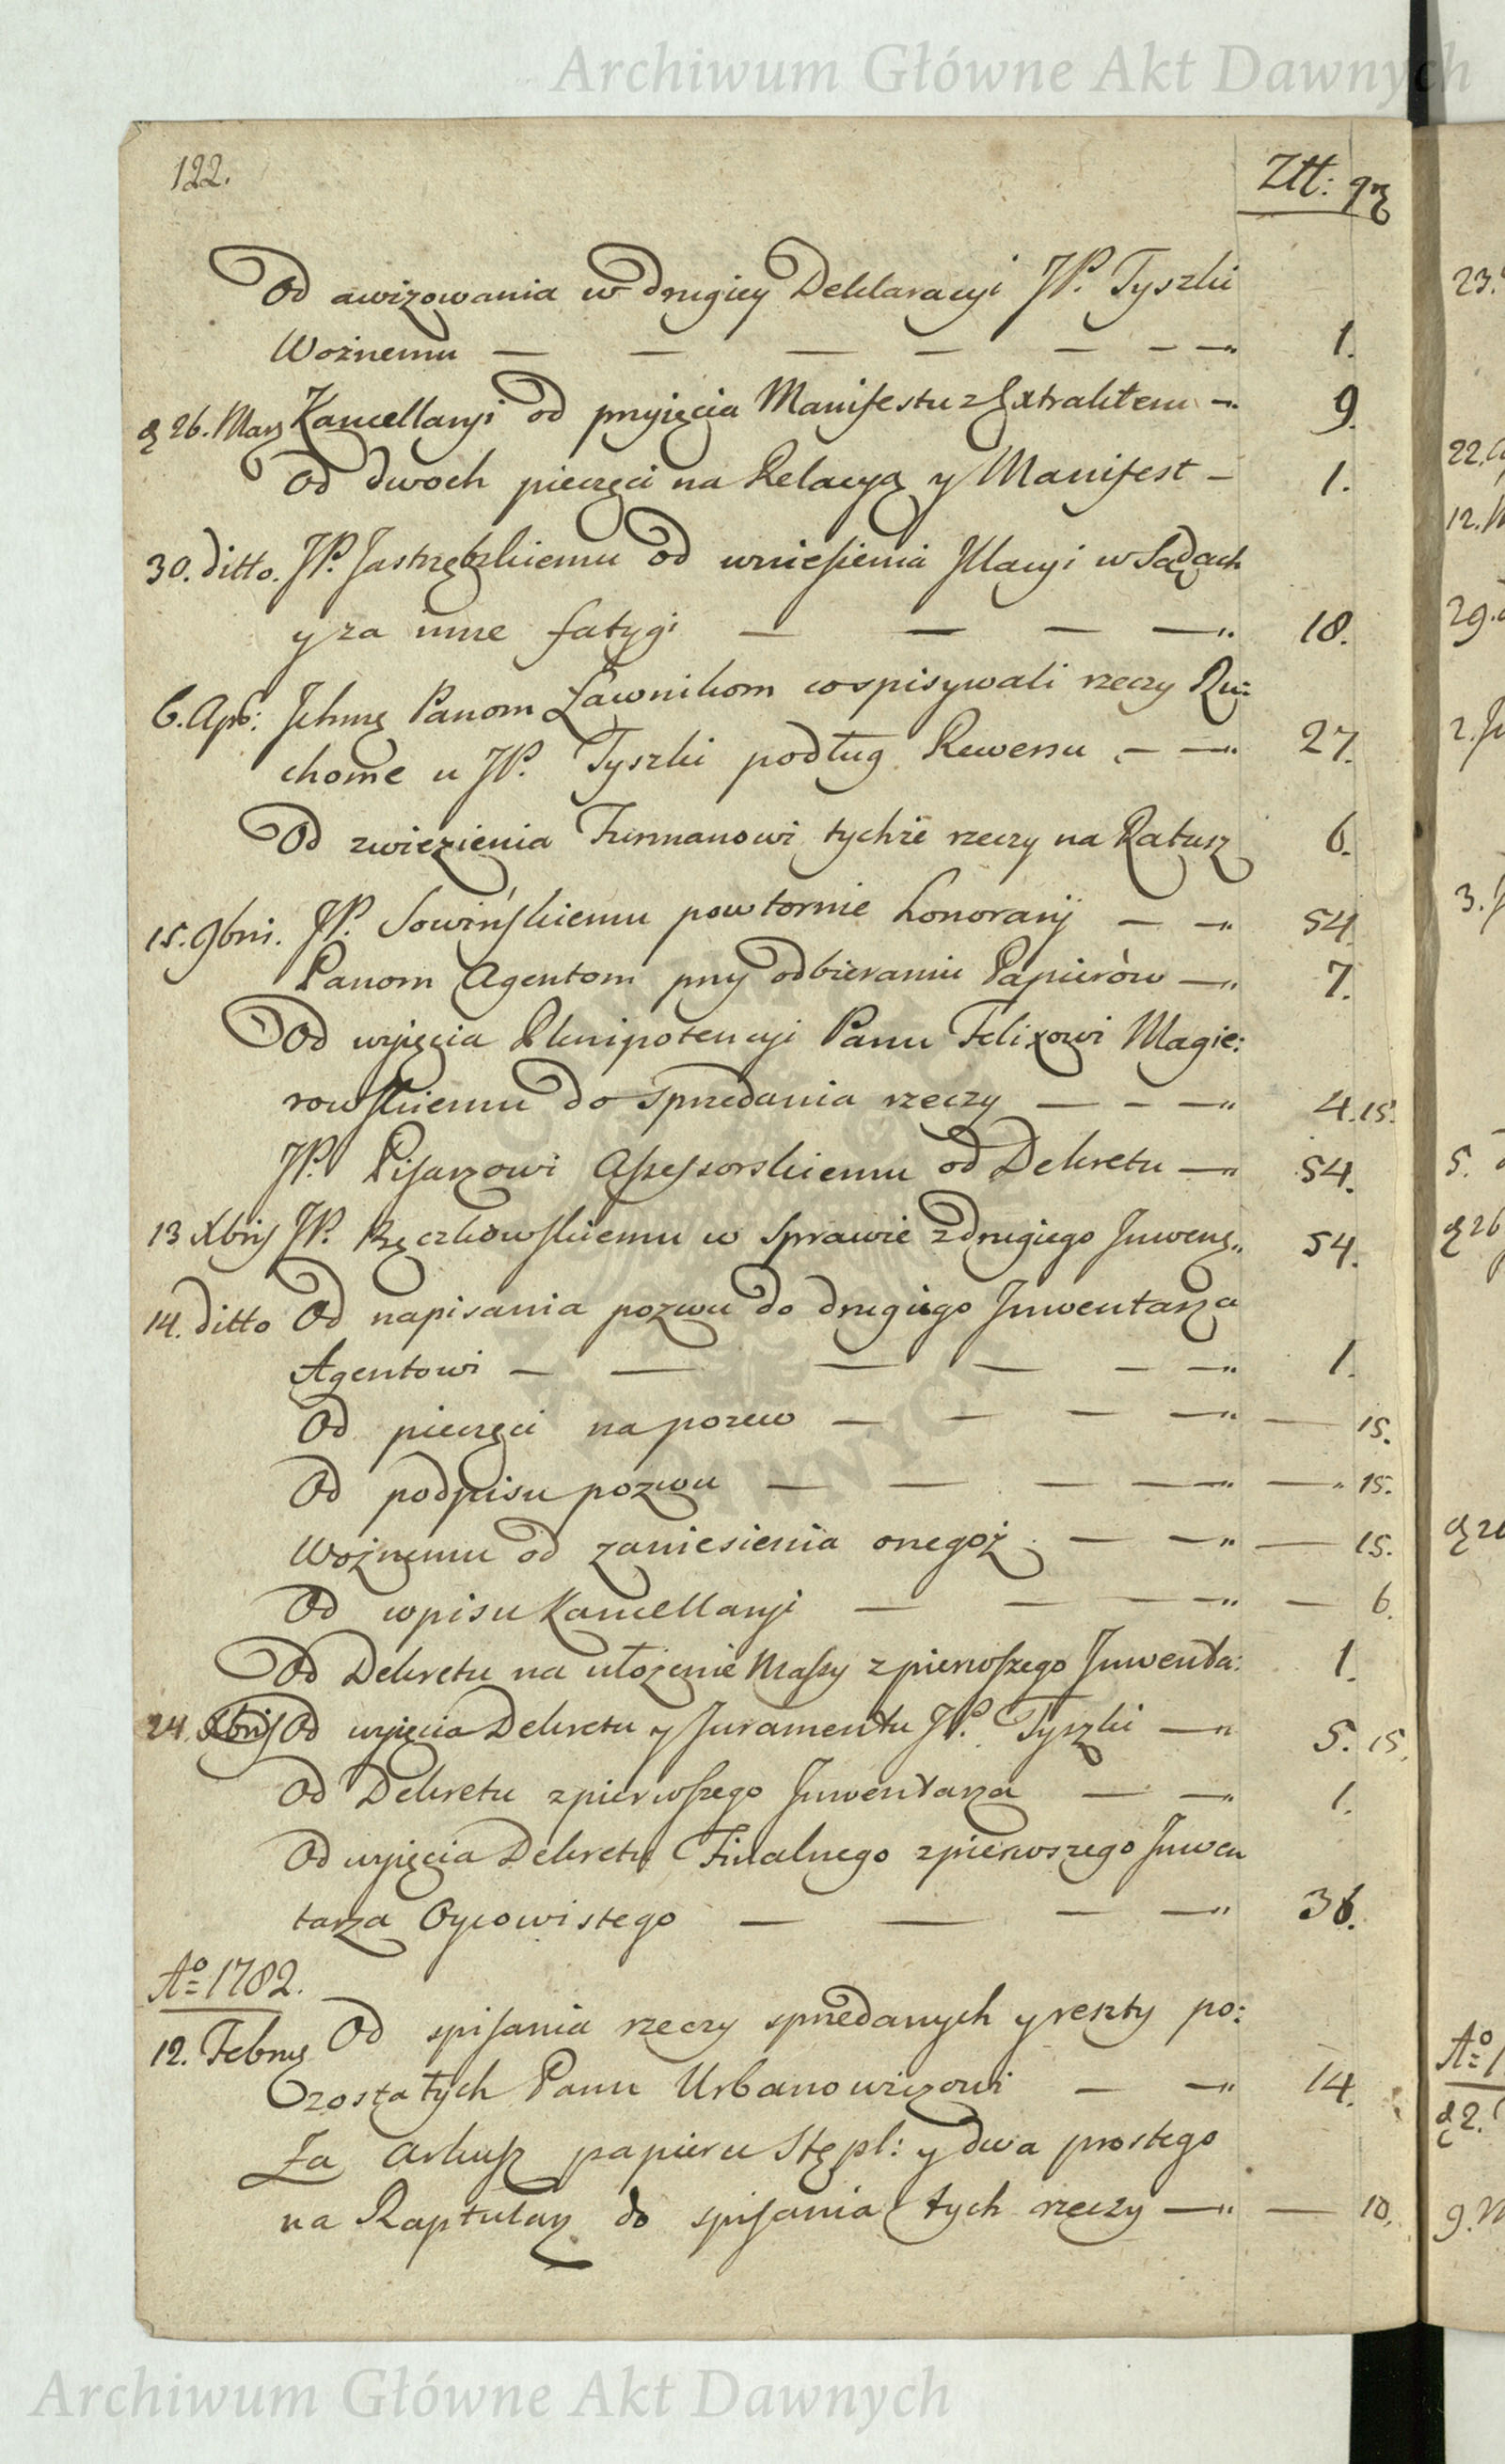 Archiwum Główne Akt Dawnych
122.
Złt: gr
Od awizowania w drugiey Deklaracyi JP. Tyszki
Woźnemu — — — — — — — 1.
d 26. Marz Kancellaryi od przyięcia Manifestu z Extraktem — 9.
Od dwoch pieczęci na Relacyą y Manifest — 1.
30. ditto. JP. Jastrzębskiemu od wniesienia Illacyi w Sądach
y za inne fatygi — — — — 18.
6. Apr: Ichmę Panom Ławnikom co spisywali rzeczy Ru:
chome u JP. Tyszki podług Rewersu — — 27.
Od zwiezienia Furmanowi tychże rzeczy na Ratusz 6.
15. 9bris. JP. Sowińskiemu powtornie honorarij — — 54.
Panom Agentom przy odbieraniu Papierów — 7.
Od wyięcia Plenipotencyi Panu Felixowi Magie:
rowskiemu do sprzedania rzeczy — — — 4. 15.
JP. Pisarzowi Assessorskiemu od Dekretu — 54.
13 Xbris JP. Rzęczkowskiemu w Sprawie z drugiego Inwent. 54.
14. ditto Od napisania pozwu do drugiego Inwentarza
Agentowi — — — — — — 1.
Od pieczęci na pozew — — — — — 15.
Od podpisu pozwu — — — — — — 15.
Woźnemu od zaniesienia onegoż — — — 15.
Od wpisu Kancellaryi — — — — — 6.
Od Dekretu na ułożenie Massy z pierwszego Inwenta: 1.
24. Xbris Od wyięcia Dekretu y Juramentu JP. Tyszki — 5. 15.
Od Dekretu z pierwszego Inwentarza — — 1.
Od wyięcia Dekretu Finalnego z pierwszego Inwen
tarza Oycowistego — — — — 36.
Aº 1782.
12. Febry Od spisania rzeczy sprzedanych y reszty po:
zostałych Panu Urbanowiczowi — — 14.
Za Arkusz papieru Stępl: y dwa prostego
na Raptularz do spisania tych rzeczy — — 10.
Archiwum Główne Akt Dawnych